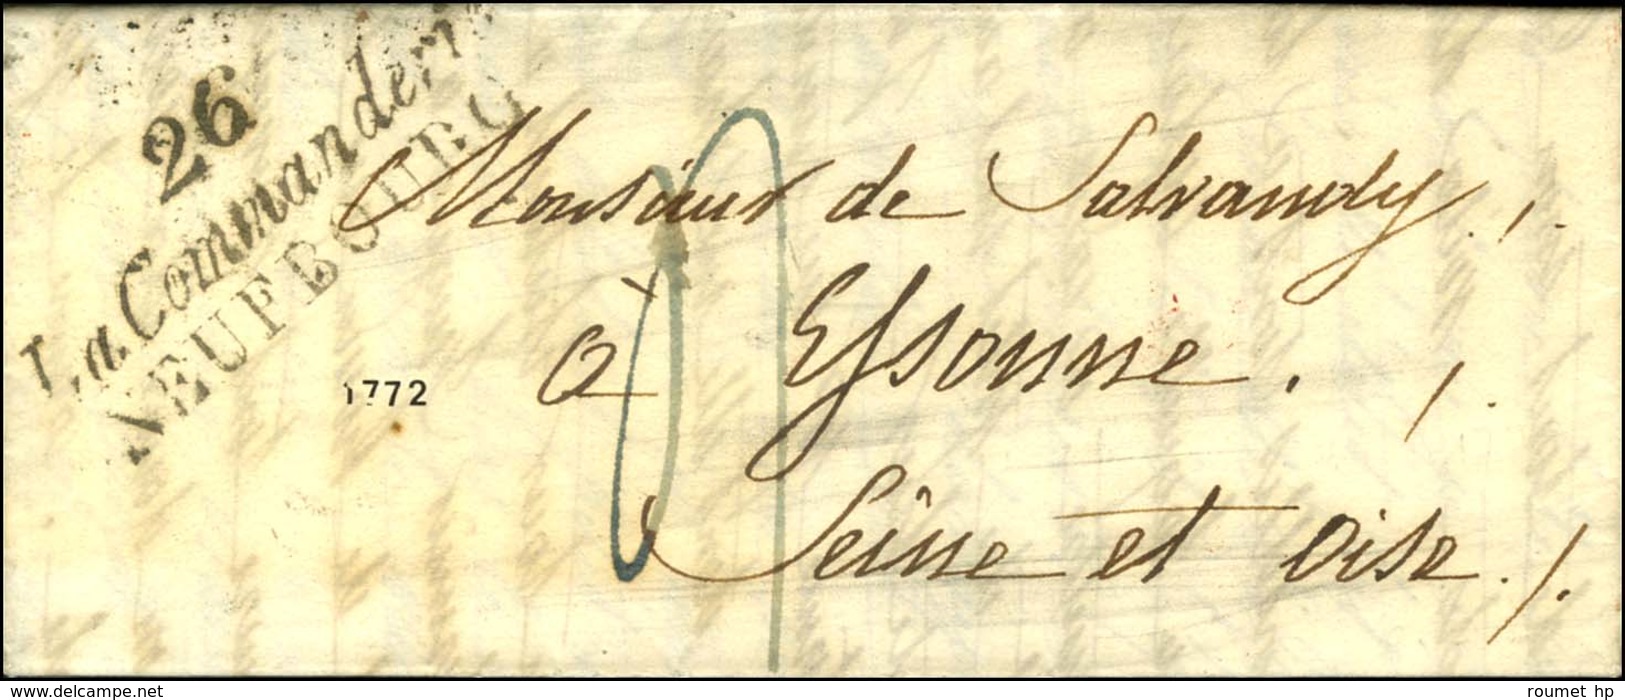 26
La Commanderie
NEUFBOURG
Monsieur de Salvandy.
1772
a Essonne.
Seine et Oise.
www.delcampe.net
roumet hp